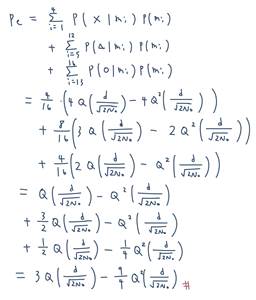 Pe = Σ_{i=1}^{4} P(X|m_i) P(m_i)
+ Σ_{i=5}^{12} P(Δ|m_i) P(m_i)
+ Σ_{i=13}^{16} P(O|m_i) P(m_i)
= 4/16 · (4Q(d/√2N₀) − 4Q²(d/√2N₀))
+ 8/16 (3Q(d/√2N₀) − 2Q²(d/√2N₀))
+ 4/16 (2Q(d/√2N₀) − Q²(d/√2N₀))
= Q(d/√2N₀) − Q²(d/√2N₀)
+ 3/2 Q(d/√2N₀) − Q²(d/√2N₀)
+ 1/2 Q(d/√2N₀) − 1/4 Q²(d/√2N₀)
= 3Q(d/√2N₀) − 9/4 Q²(d/√2N₀) #